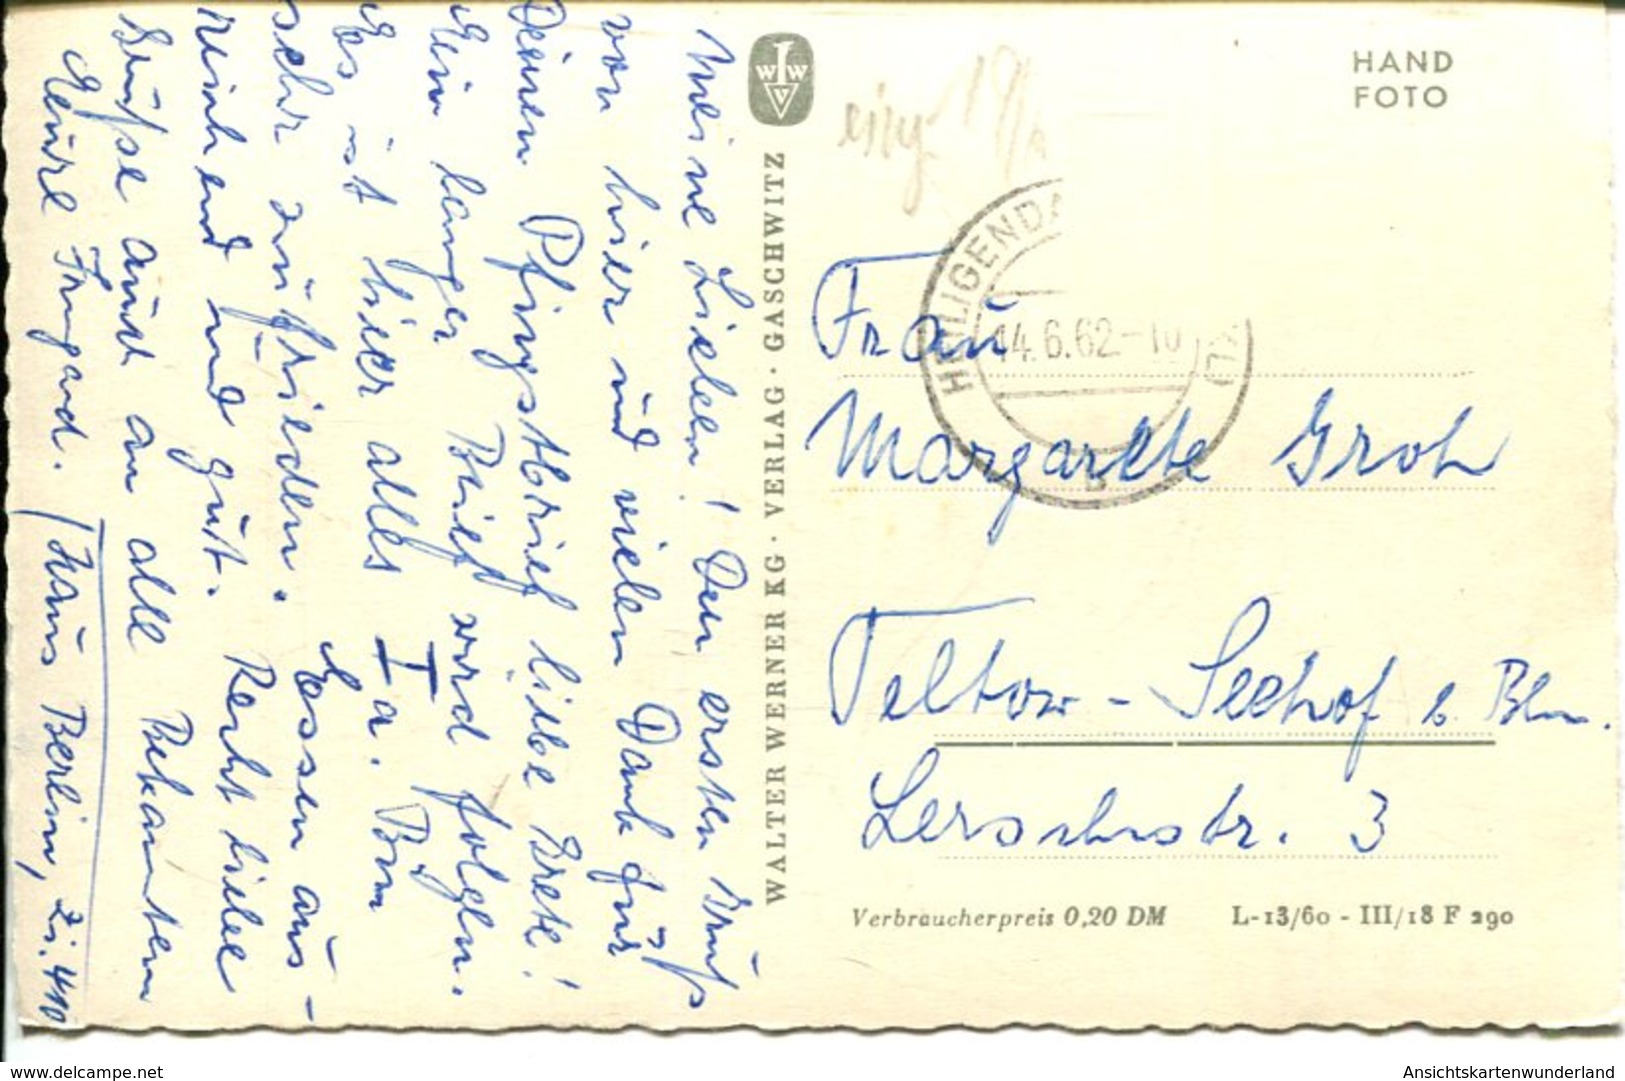 Meine Lieben! Den ersten Gruß
von hier und vielen Dank für
Deinen Pfingstbrief liebe Grete!
Ein langer Brief wird folgen.
Es ist hier alles I a. Bin
sehr zufrieden. Essen aus-
reichend und gut. Recht liebe
Grüße auch an alle Bekannten
Eure Irmgard. (Haus Berlin, Zi. 410
WWV
WALTER WERNER KG · VERLAG · GASCHWITZ
HAND
FOTO
eing. 19/6
HEILIGENDA
14.6.62-10
b
Frau
Margarete Groh
Teltow - Seehof b. Bln.
Lerschstr. 3
Verbraucherpreis 0,20 DM L-13/60 - III/18 F 290
www.delcampe.net
Ansichtskartenwunderland